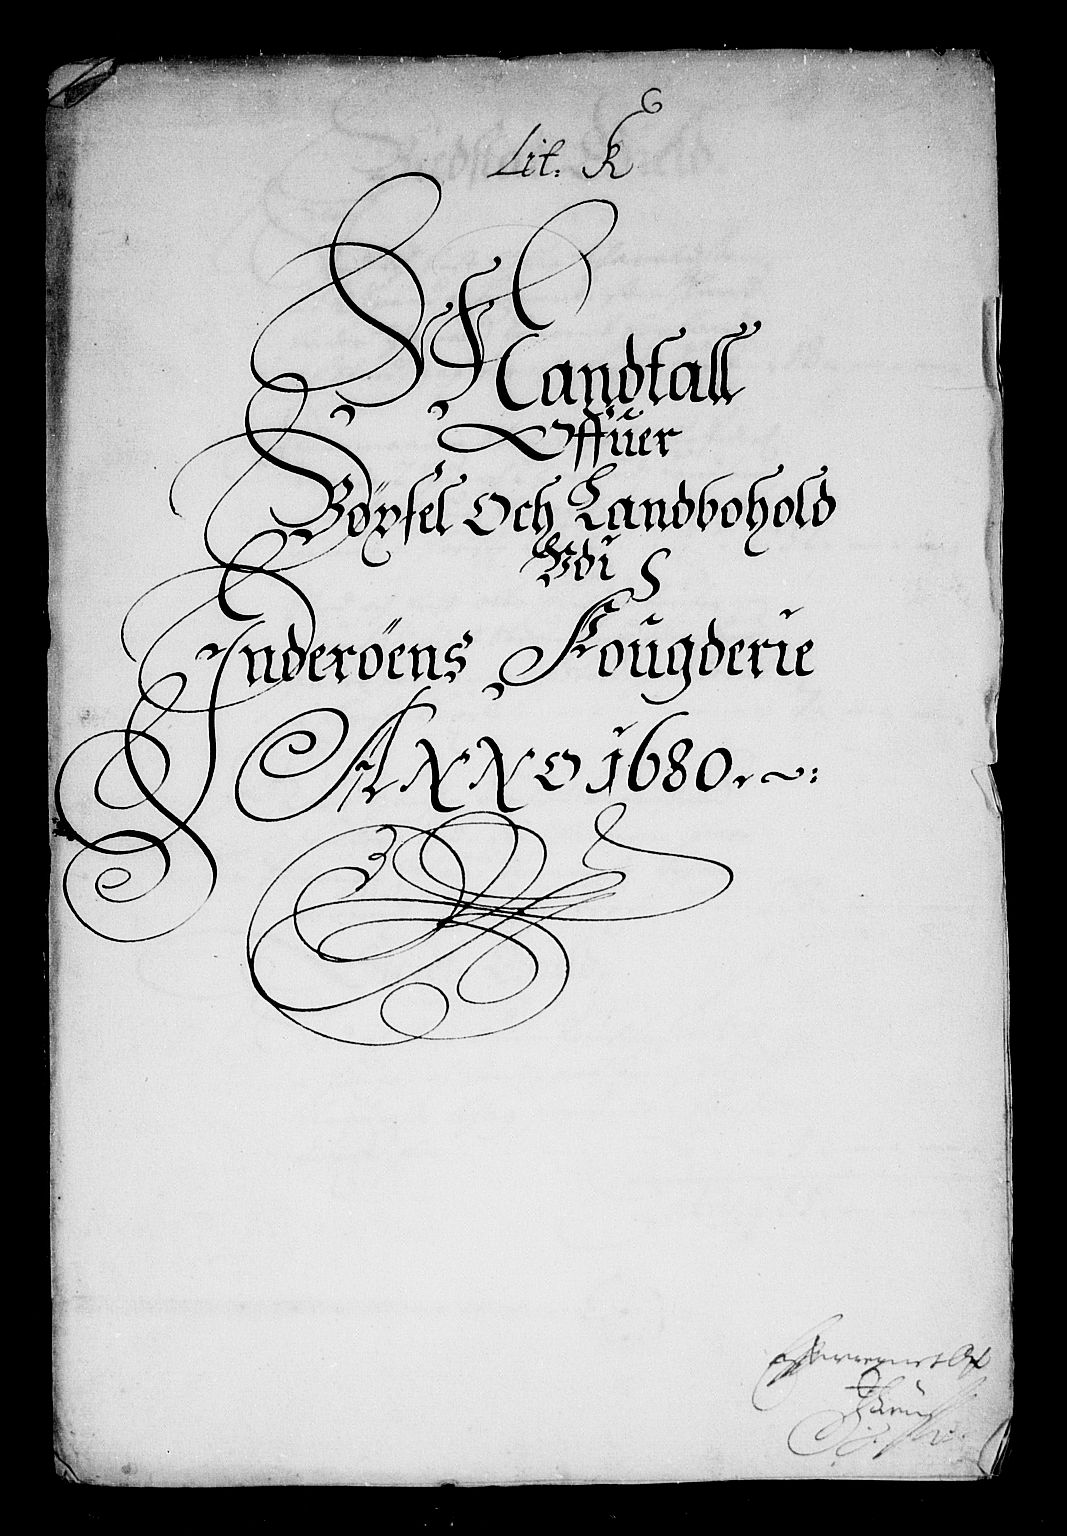 Lit. K
Mandtall
Offuer
Böysel Och Landbohold
Vdi
Inderöens Fougderie
ANNO 1680.